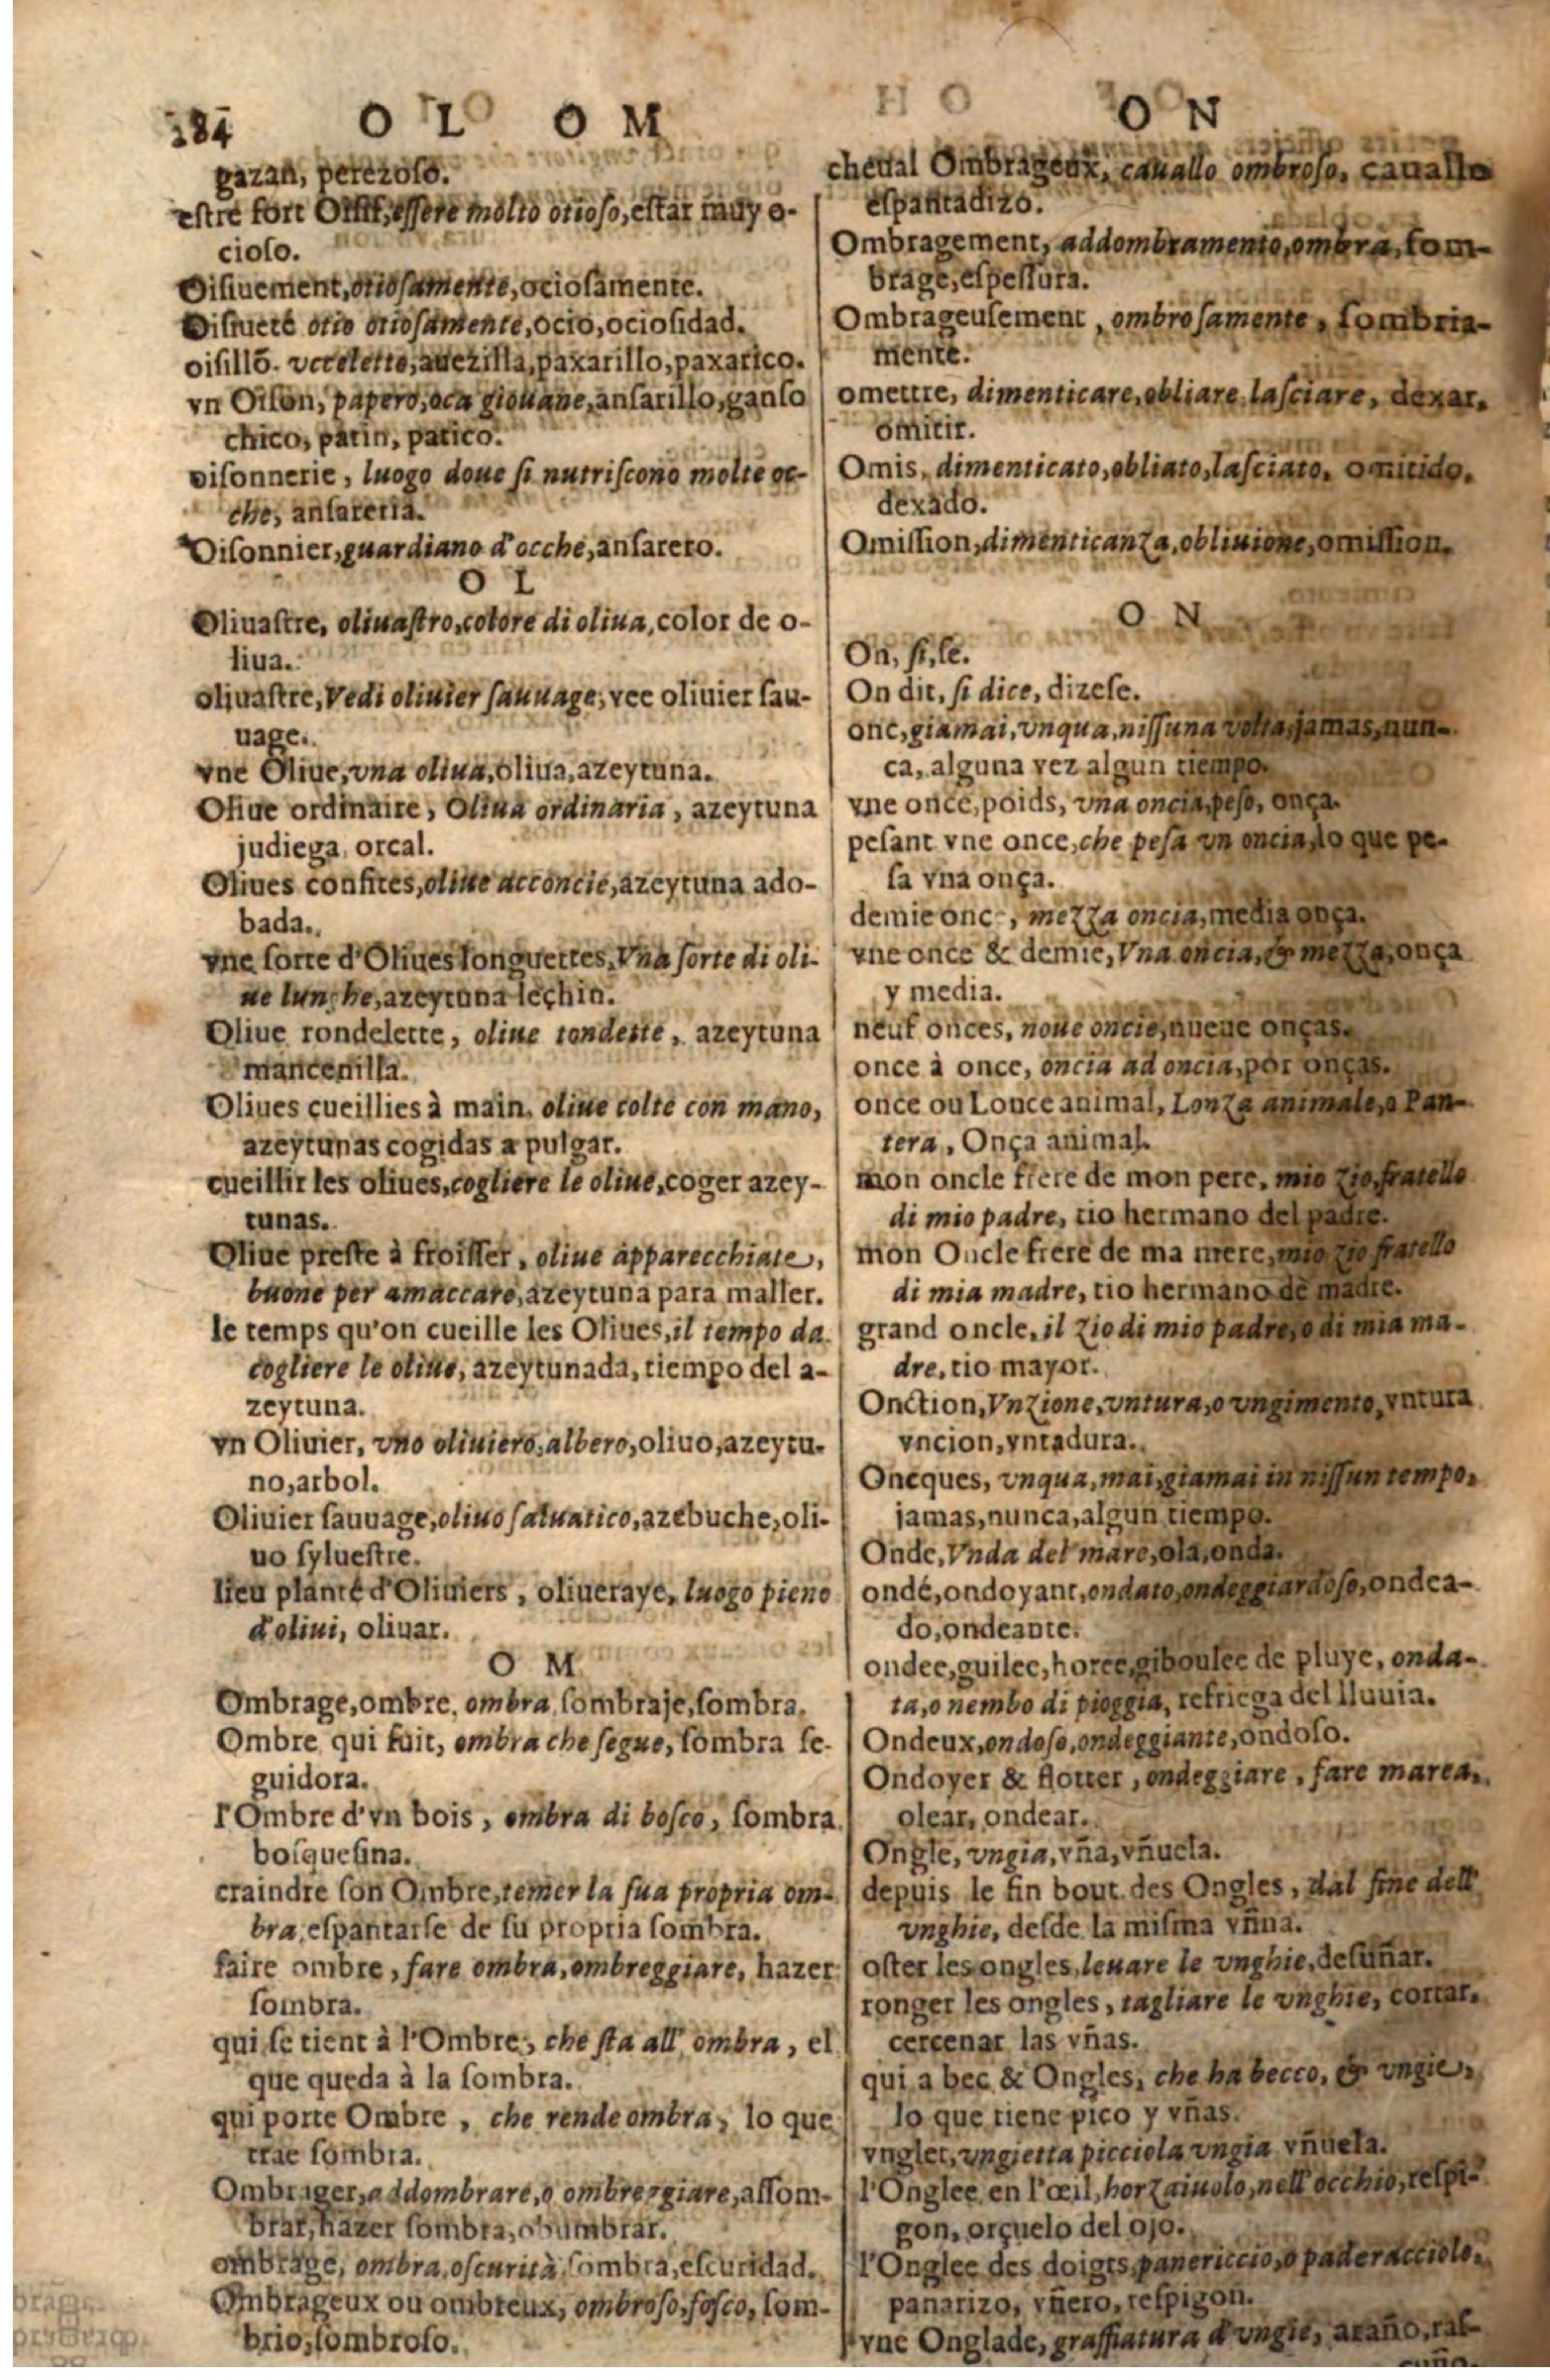 284 O L O M O N
gazan, perezoſo.
eſtre fort Oiſif, eſſere molto otioſo, eſtar muy o-
cioſo.
Oiſiuement, otioſamente, ocioſamente.
Oiſiueté otio otioſamente, ocio, ocioſidad.
oiſillõ. vcceletto, auezilla, paxarillo, paxarico.
vn Oiſon, papero, oca giouane, anſarillo, ganſo
chico, patin, patico.
oiſonnerie, luogo doue ſi nutriſcono molte oc-
che, anſareria.
Oiſonnier, guardiano d'ocche, anſarero.
O L
Oliuaſtre, oliuaſtro, colore di oliua, color de o-
liua.
oliuaſtre, Vedi oliuier ſauuage, vee oliuier ſau-
uage.
vne Oliue, vna oliua, oliua, azeytuna.
Oliue ordinaire, Oliua ordinaria, azeytuna
judiega, orcal.
Oliues confites, oliue acconcie, azeytuna ado-
bada.
vne ſorte d'Oliues longuettes, Vna ſorte di oli-
ue lunghe, azeytuna leçhin.
Oliue rondelette, oliue tondette, azeytuna
mancenilla.
Oliues cueillies à main, oliue colte con mano,
azeytunas cogidas a pulgar.
cueillir les oliues, cogliere le oliue, coger azey-
tunas.
Oliue preſte à froiſſer, oliue apparecchiate,
buone per amaccare, azeytuna para maller.
le temps qu'on cueille les Oliues, il tempo da
cogliere le oliue, azeytunada, tiempo del a-
zeytuna.
vn Oliuier, vno oliuiero, albero, oliuo, azeytu-
no, arbol.
Oliuier ſauuage, oliuo ſaluatico, azebuche, oli-
uo ſylueſtre.
lieu planté d'Oliuiers, oliueraye, luogo pieno
d'oliui, oliuar.
O M
Ombrage, ombre, ombra, ſombraje, ſombra.
Ombre qui ſuit, ombra che ſegue, ſombra ſe-
guidora.
l'Ombre d'vn bois, ombra di boſco, ſombra
boſqueſina.
craindre ſon Ombre, temer la ſua propria om-
bra, eſpantarſe de ſu propria ſombra.
faire ombre, fare ombra, ombreggiare, hazer
ſombra.
qui ſe tient à l'Ombre, che ſta all' ombra, el
que queda à la ſombra.
qui porte Ombre, che rende ombra, lo que
trae ſombra.
Ombrager, addombrare, o ombreggiare, aſſom-
brar, hazer ſombra, obumbrar.
ombrage, ombra, oſcurità, ſombra, eſcuridad.
Ombrageux ou ombreux, ombroſo, foſco, ſom-
brio, ſombroſo.
cheual Ombrageux, cauallo ombroſo, cauallo
eſpantadizo.
Ombragement, addombramento, ombra, ſom-
brage, eſpeſſura.
Ombrageuſement, ombroſamente, ſombria-
mente.
omettre, dimenticare, obliare, laſciare, dexar,
omitir.
Omis, dimenticato, obliato, laſciato, omitido,
dexado.
Omiſſion, dimenticanza, obliuione, omiſſion.
O N
On, ſi, ſe.
On dit, ſi dice, dizeſe.
onc, giamai, vnqua, niſſuna volta, jamas, nun-
ca, alguna vez algun tiempo.
vne once, poids, vna oncia, peſo, onça.
peſant vne once, che peſa vn oncia, lo que pe-
ſa vna onça.
demie onc, mezza oncia, media onça.
vne once & demie, Vna oncia, & mezza, onça
y media.
neuf onces, noue oncie, nueue onças.
once à once, oncia ad oncia, por onças.
once ou Lonce animal, Lonza animale, o Pan-
tera, Onça animal.
mon oncle frere de mon pere, mio zio, fratello
di mio padre, tio hermano del padre.
mon Oncle frere de ma mere, mio zio fratello
di mia madre, tio hermano de madre.
grand oncle, il zio di mio padre, o di mia ma-
dre, tio mayor.
Onction, Vnzione, vntura, o vngimento, vntura
vncion, vntadura.
Oncques, vnqua, mai, giamai in niſſun tempo,
jamas, nunca, algun tiempo.
Onde, Vnda del mare, ola, onda.
ondé, ondoyant, ondato, ondeggiardoſo, ondea-
do, ondeante.
ondee, guilee, horee, giboulee de pluye, onda-
ta, o nembo di pioggia, refriega del lluuia.
Ondeux, ondoſo, ondeggiante, ondoſo.
Ondoyer & flotter, ondeggiare, fare marea,
olear, ondear.
Ongle, vngia, vña, vñuela.
depuis le fin bout des Ongles, dal fine dell'
vnghie, deſde la miſma vñna.
oſter les ongles, leuare le vnghie, deſuñar.
ronger les ongles, tagliare le vnghie, cortar,
cercenar las vñas.
qui a bec & Ongles, che ha becco, & vngie,
lo que tiene pico y vñas.
vnglet, vngietta picciola vngia vñuela.
l'Onglee en l'œil, horzaiuolo, nell'occhio, reſpi-
gon, orçuelo del ojo.
l'Onglee des doigts, panericcio, o
panarizo, vñero, reſpigon.
vne Onglade, graffiatura d'vngie, araño, raſ-
cuño.